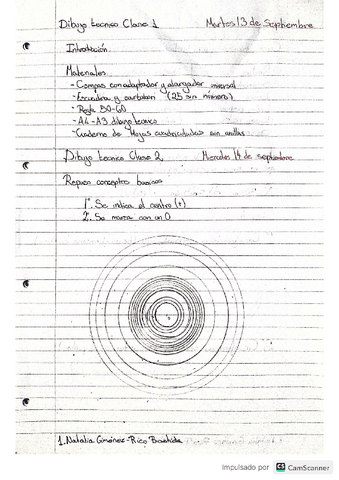 Dibujo tecnico Clase 1 Martes 13 de Septiembre
Introducción
Materiales
- Compas con adaptador y alargador universal
- Escuadra y cartabon (25 sin numero)
- Regla 50-60
- A4-A3 dibujo tecnico
- Cuaderno de hojas cuadriculadas sin anillas
Dibujo tecnico Clase 2 Miercoles 14 de septiembre
Repaso conceptos basicos
1º. Se indica el centro (+)
2º. Se marca con un O
1. Natalia Gimenez-Rico
Impulsado por CS CamScanner